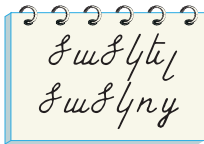 ծածկել
ծածկոց